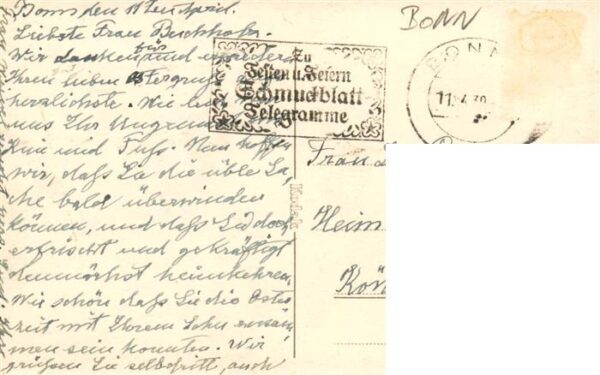 Bonn den 11ten April.
Liebste Frau
Wir danken für und erwidern
Ihren lieben Ostergruß
herzlichste. Wie
uns Ihr
Knie und Fuß. Nun hoffen
wir, daß Sie die üble Sa-
che bald überwinden
können, und daß Sie doch
erfrischt und gekräftigt
demnächst heimkehren.
Wie schön daß Sie die Oster
zeit mit Ihrem Sohn zusam
men sein konnten. Wir
grüßen Sie selbdritt, auch
Zu
Festen u. Feiern
Schmuckblatt
Telegramme
BONN
BONN
11.4.39
Kodak
Frau
Heim
Kön